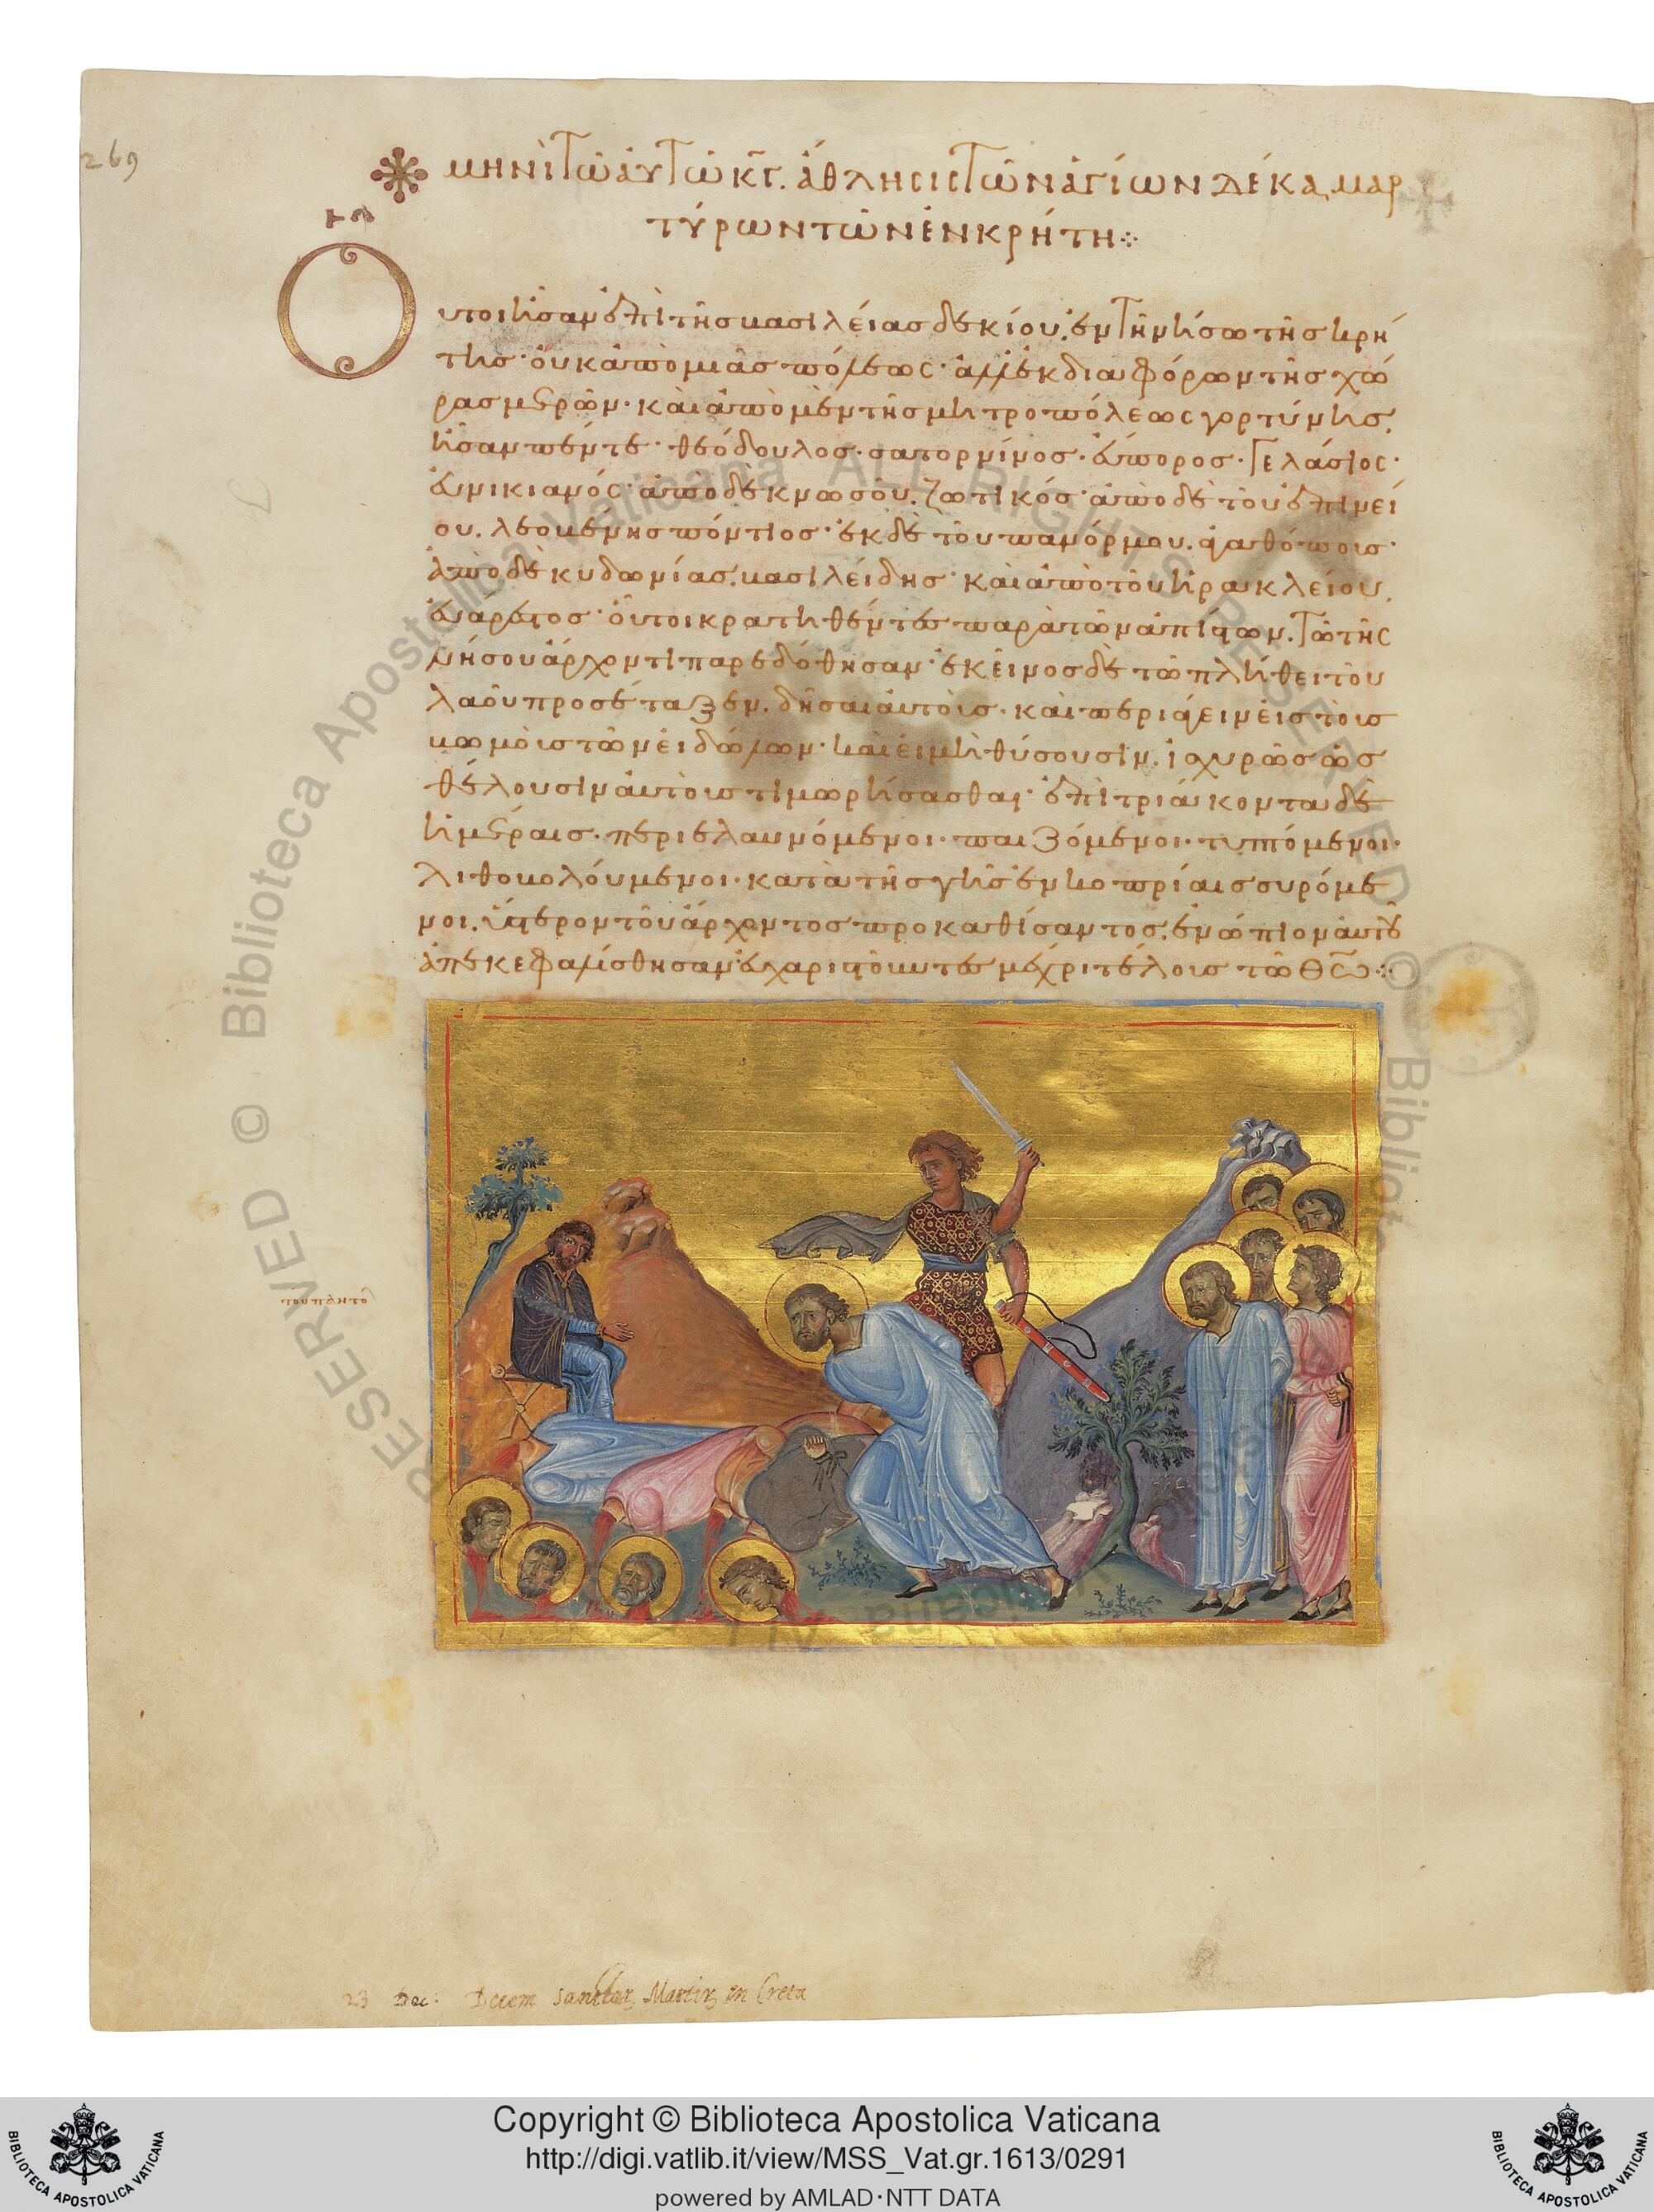 269
μηνὶ τῷ αὐτῷ κγ. ἄθλησις τῶν ἁγίων δέκα μαρ
τύρων τῶν ἐν κρήτη
Οὗτοι ἦσαν ἐπὶ τῆς βασιλείας δεκίου, ἐν τῆ νήσω τῆς κρή
της· οὐκ ἀπὸ μιᾶς πόλεως· ἀλλ' ἐκ διαφόρων τῆς χώ
ρας μερῶν· καὶ ἀπὸ μὲν τῆς μητροπόλεως γορτύνης,
ἦσαν πέντε· θεόδουλος· σατορνίνος· εὔπορος· Γελάσιος·
εὐνικιανός· ἀπὸ δὲ κνωσοῦ, ζωτικός· ἀπὸ δὲ τοῦ ἐπινεί
ου, λεομένης πόντιος· ἐκ δὲ τοῦ πανόρμου, ἀγαθόπους·
ἀπὸ δὲ κυδωνίας, βασιλείδης· καὶ ἀπὸ τοῦ ἡρακλείου,
εὐάρεστος· οὗτοι κρατηθέντες παρὰ τῶν ἀπίστων, τῶ τῆς
νήσου ἄρχοντι παρεδόθησαν· ἐκεῖνος δὲ τῶ πλήθει τοῦ
λαοῦ προσέταξεν, δῆσαι αὐτοὺς· καὶ περιάγειν εἰς τοὺς
βωμοὺς τῶν εἰδώλων· καὶ εἰ μὴ θύσουσιν, ἰσχυρῶς ὡς
θέλουσιν αὐτοὺς τιμωρήσασθαι· ἐπὶ τριάκοντα δὲ
ἡμέραις· περιελαυνόμενοι· παιζόμενοι· τυπτόμενοι·
λιθοβολούμενοι· κατὰ τῆς γῆς ἐν κοπρίαις συρόμε
νοι, ὕστερον τοῦ ἄρχοντος προκαθίσαντος, ἐνώπιον αὐτοῦ
ἀπεκεφαλίσθησαν εὐχαριστοῦντες μέχρι τέλους τῶ Θῶ
23 Dec: Decem Sanctor Martir in Creta
© Biblioteca Apostolica Vaticana ALL RIGHTS RESERVED
Copyright © Biblioteca Apostolica Vaticana
http://digi.vatlib.it/view/MSS_Vat.gr.1613/0291
powered by AMLAD·NTT DATA
BIBLIOTECA APOSTOLICA VATICANA
BIBLIOTECA APOSTOLICA VATICANA